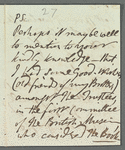 P.S. 27
Perhaps it may be well
to mention to your
kindly knowledge - that
I had some good
(old friends of my Brother)
amongst the Trustees
in the Committee
of the British Museum
who considered the Book